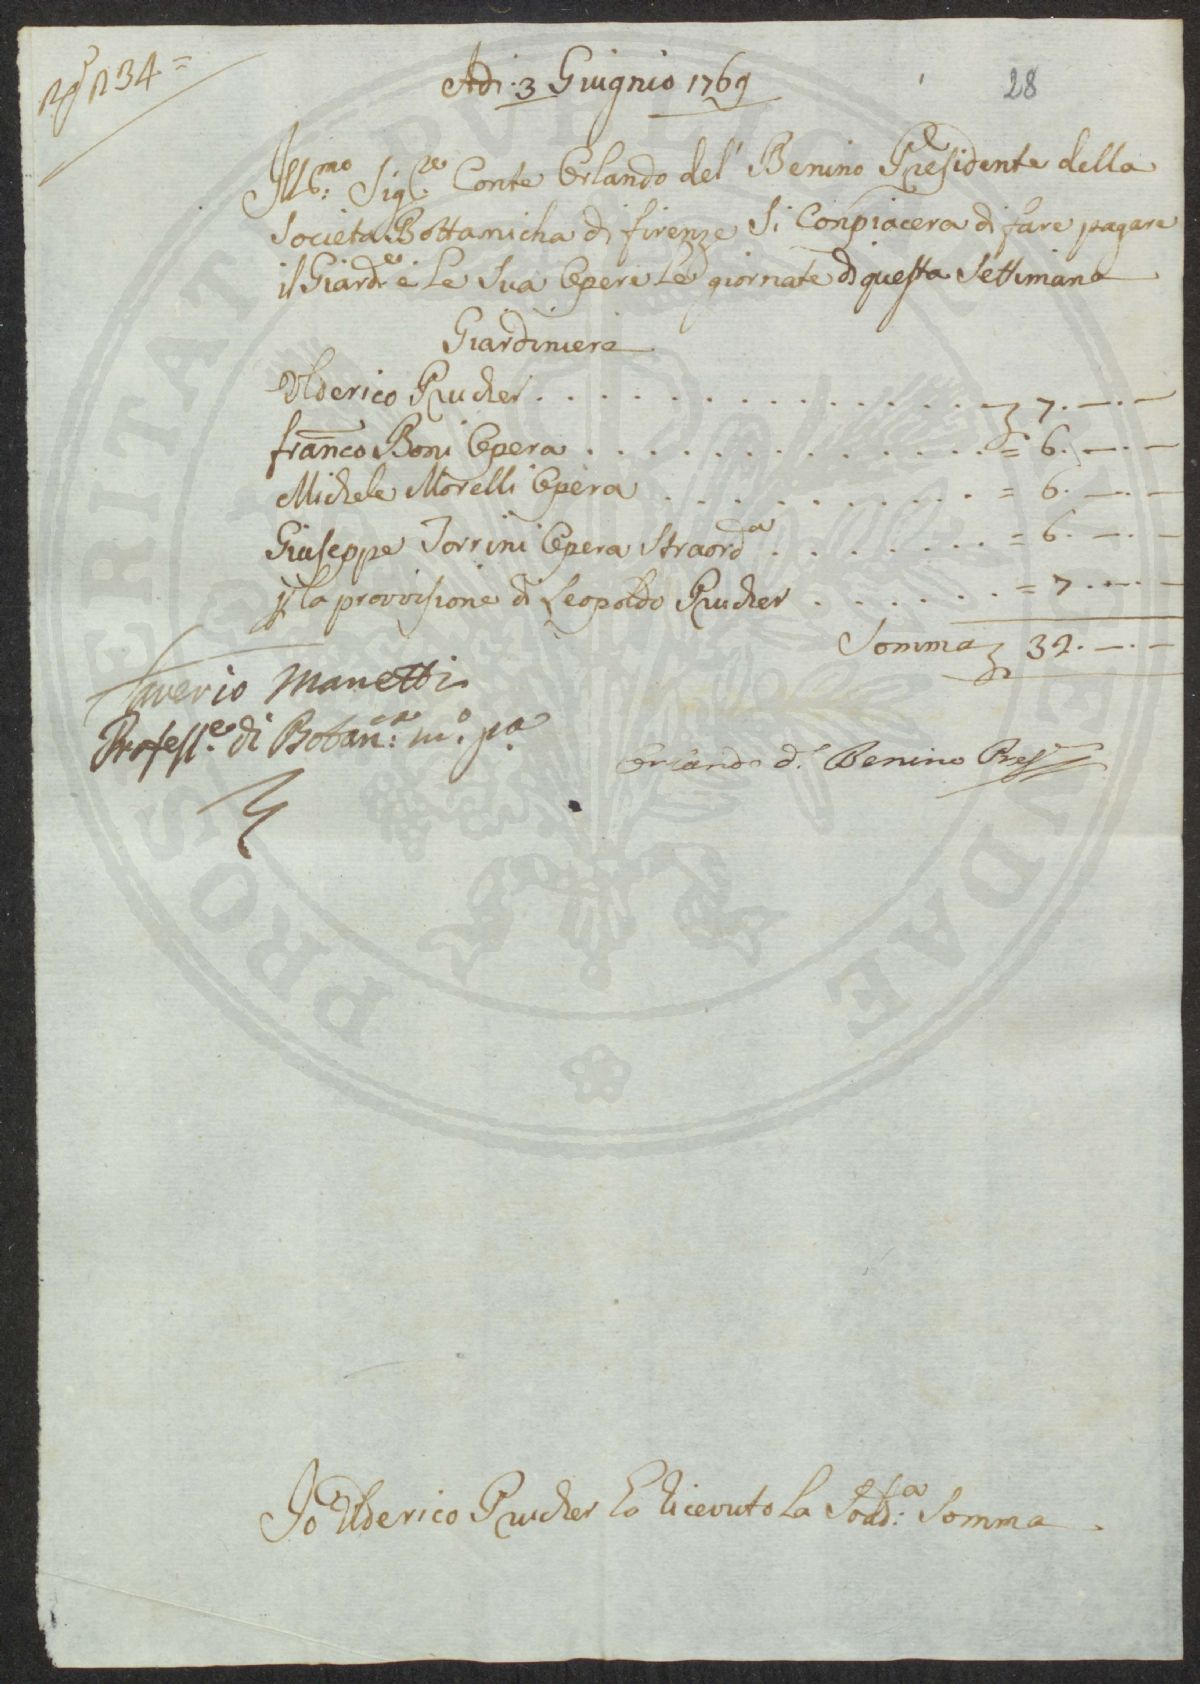 N° 234=
Adi: 3 Giugnio 1769
28
Ill:mo Sig:re Conte Orlando del' Benino Presidente della
Società Bottanicha di firenze Si Conpiacera di fare pagare
il Giard:e e Le Sua Opere Le giornate di questa Settimana
Giardiniere
Ulderico Prucher . . . . . . . . . . . . . 7. —. —
franco Boni Opera . . . . . . . . . . . . . = 6. —. —
Michele Morelli Opera . . . . . . . . . . = 6. —. —
Giuseppe Torrini Opera Straord:a . . . . . . . = 6. —. —
p la provvisione di Leopoldo Prucher . . . . . . . = 7. —. —
Somma 32. —. —
Saverio Manetti
Profess:e di Botan:a m:o p:a
Orlando d:l Benino Pres:e
Io Ulderico Prucher ho Ricevuto La Sodd:a Somma
PROSPERITATI PVBLICAE AVGENDAE